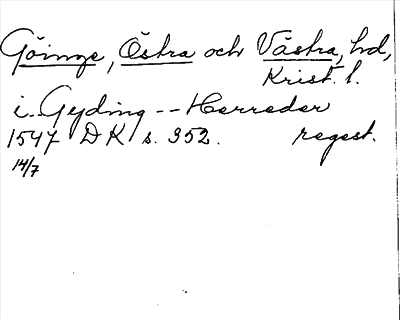 Göinge, Östra och Västra, hd,
Krist. l.
i Gyding -- Herreder
1547 DK s. 352. regest.
14/7